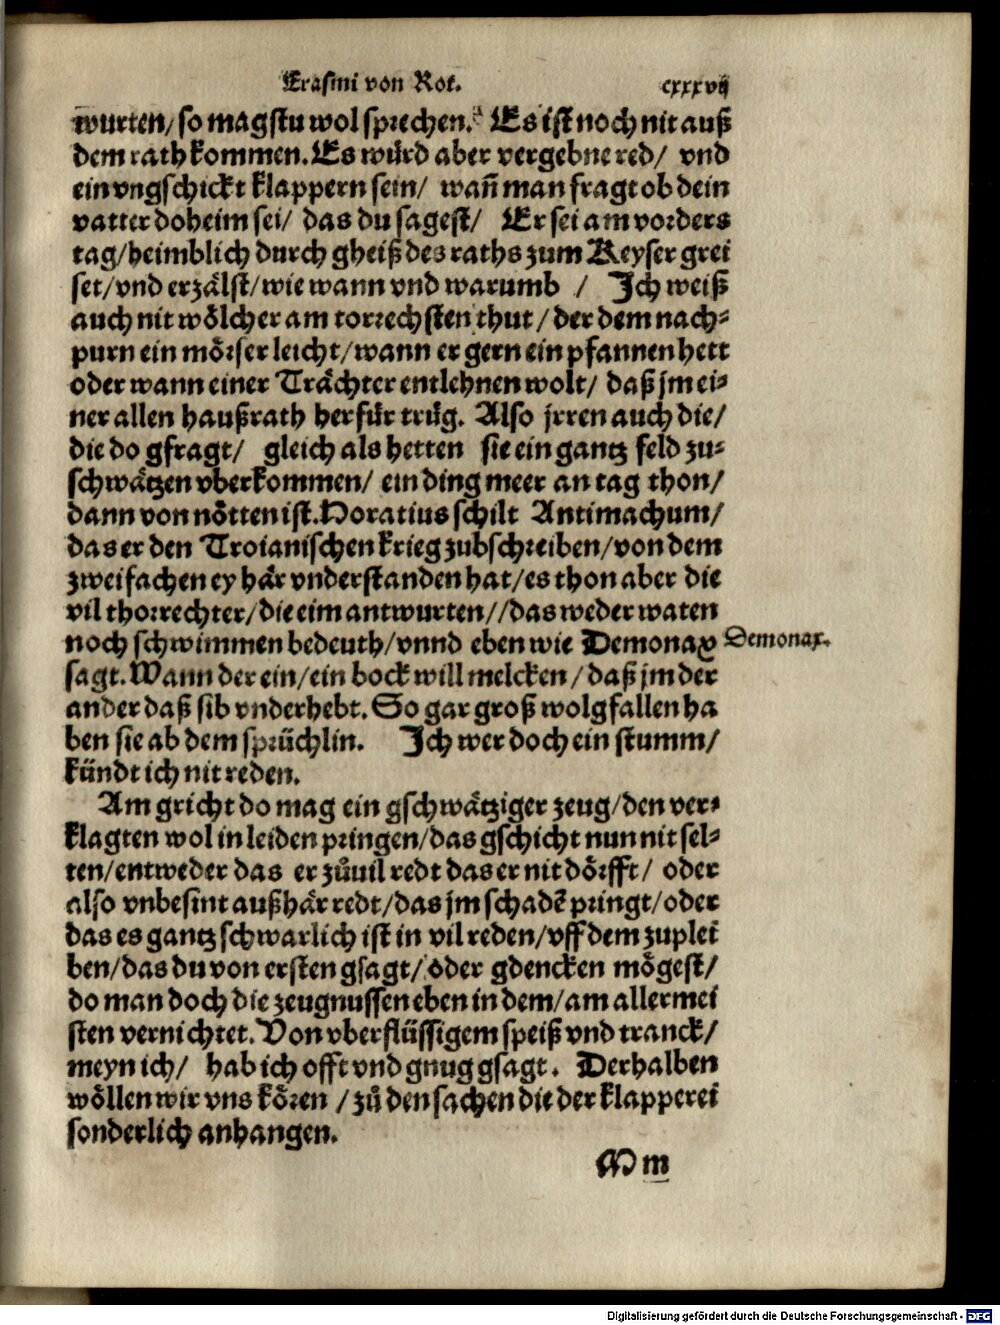 Erasmi von Rot. cxxxvij
wurten/ so magstu wol sprechen. Es ist noch nit auß
dem rath kommen. Es wůrd aber vergebne red/ vnd
ein vngschickt klappern sein/ wañ man fragt ob dein
vatter doheim sei/ das du sagest/ Er sei am vorders
tag/ heimblich durch gheiß des raths zum Keyser grei
set/ vnd erzålst/ wie wann vnd warumb / Ich weiß
auch nit wőlcher am torrechsten thut / der dem nach⸗
purn ein mőrser leicht/ wann er gern ein pfannen hett
oder wann einer Tråchter entlehnen wolt/ daß jm ei⸗
ner allen haußrath herfůr trůg. Also jrren auch die/
die do gfragt/ gleich als hetten sie ein gantz feld zu⸗
schwåtzen vberkommen/ ein ding meer an tag thon/
dann von nőtten ist. Horatius schilt Antimachum/
das er den Troianischen krieg zubschreiben/ von dem
zweifachen ey hår vnderstanden hat/ es thon aber die
vil thorrechter/ die eim antwurten// das weder waten
noch schwimmen bedeuth/ vnnd eben wie Demonax
Demonax.
sagt. Wann der ein/ ein bock will melcken / daß jm der
ander daß sib vnderhebt. So gar groß wolgfallen ha
ben sie ab dem sprüchlin. Ich wer doch ein stumm/
kündt ich nit reden.
Am gricht do mag ein gschwåtziger zeug/ den ver⸗
klagten wol in leiden pringen/ das gschicht nun nit sel⸗
ten/ entweder das er zůuil redt das er nit dőrfft/ oder
also vnbesint außhår redt/ das jm schadē pringt/ oder
das es gantz schwarlich ist in vil reden/ vff dem zuplei
ben/ das du von ersten gsagt/ oder gdencken mőgest/
do man doch die zeugnussen eben in dem/ am allermei
sten vernichtet. Von vberflüssigem speiß vnd tranck/
meyn ich/ hab ich offt vnd gnug gsagt. Derhalben
wőllen wir vns kőren / zů den sachen die der klapperei
sonderlich anhangen.
M m
Digitalisierung gefördert durch die Deutsche Forschungsgemeinschaft - DFG